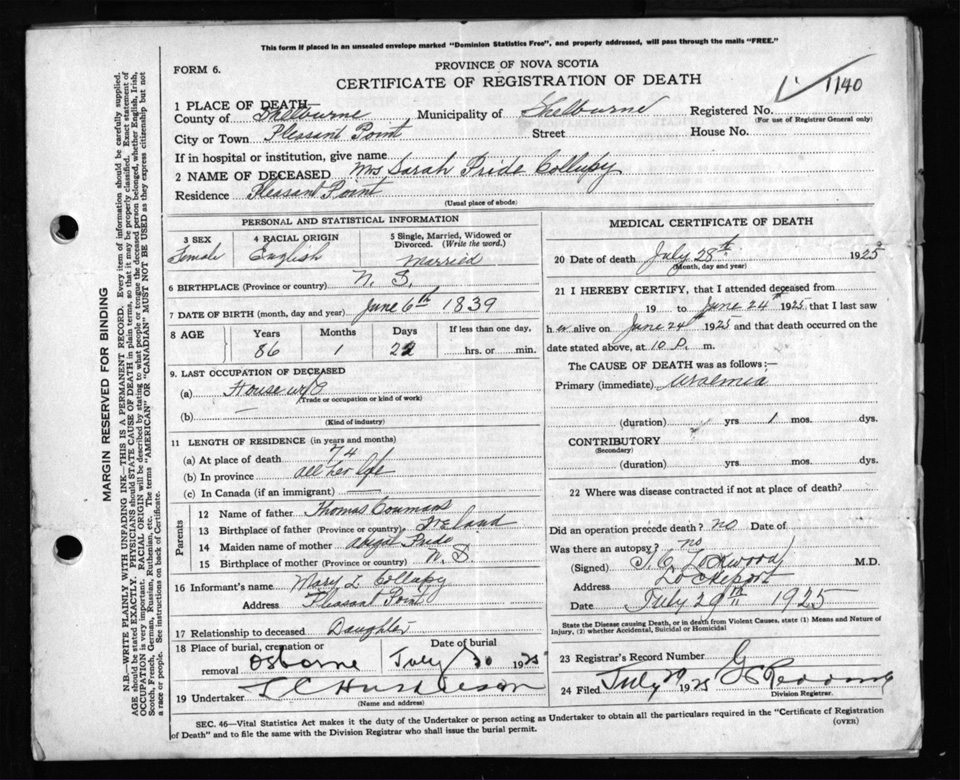 This form if placed in an unsealed envelope marked "Dominion Statistics Free", and properly addressed, will pass through the mails "FREE."
FORM 6.
PROVINCE OF NOVA SCOTIA
CERTIFICATE OF REGISTRATION OF DEATH
1140
1 PLACE OF DEATH
County of Shelburne Municipality of Shelburne Registered No.
(For use of Registrar General only)
City or Town Pleasant Point Street House No.
If in hospital or institution, give name
2 NAME OF DECEASED Mrs Sarah Pride Collupy
Residence Pleasant Point
(Usual place of abode)
PERSONAL AND STATISTICAL INFORMATION
3 SEX 4 RACIAL ORIGIN 5 Single, Married, Widowed or Divorced. (Write the word.)
Female English Married
6 BIRTHPLACE (Province or country) N. S.
7 DATE OF BIRTH (month, day and year) June 6th 1839
8 AGE Years Months Days If less than one day,
86 1 22 hrs. or min.
9. LAST OCCUPATION OF DECEASED
(a) House wife
(Trade or occupation or kind of work)
(b) —
(Kind of industry)
11 LENGTH OF RESIDENCE (in years and months)
(a) At place of death 74
(b) In province all her life
(c) In Canada (if an immigrant)
Parents
12 Name of father Thomas
13 Birthplace of father (Province or country) Ireland
14 Maiden name of mother Abigal Pride
15 Birthplace of mother (Province or country) N. S.
16 Informant's name Mary L Collupy
Address Pleasant Point
17 Relationship to deceased Daughter
18 Place of burial, cremation or removal Osborne Date of burial July 30 1925
19 Undertaker
(Name and address)
MEDICAL CERTIFICATE OF DEATH
20 Date of death July 28th 1925
(Month, day and year)
21 I HEREBY CERTIFY, that I attended deceased from
19 to June 24th 1925 that I last saw
h er alive on June 24th 1925 and that death occurred on the
date stated above, at 10 P. m.
The CAUSE OF DEATH was as follows:—
Primary (immediate) Uraemia
(duration) yrs 1 mos. dys.
CONTRIBUTORY
(Secondary)
(duration) yrs mos. dys.
22 Where was disease contracted if not at place of death?
Did an operation precede death? no Date of
Was there an autopsy? no
(Signed) Lockwood M.D.
Address Lockeport
Date July 29th 1925
State the Disease causing Death, or in death from Violent Causes, state (1) Means and Nature of Injury, (2) whether Accidental, Suicidal or Homicidal
23 Registrar's Record Number
24 Filed July 29 1925
Division Registrar.
SEC. 46—Vital Statistics Act makes it the duty of the Undertaker or person acting as Undertaker to obtain all the particulars required in the "Certificate of Registration
of Death" and to file the same with the Division Registrar who shall issue the burial permit.
(OVER)
MARGIN RESERVED FOR BINDING
N.B.—WRITE PLAINLY WITH UNFADING INK—THIS IS A PERMANENT RECORD. Every item of information should be carefully supplied.
AGE should be stated EXACTLY. PHYSICIANS should STATE CAUSE OF DEATH in plain terms, so that it may be properly classified. Exact statement of
OCCUPATION is very important. RACIAL ORIGIN will be described by stating to what people or tongue the deceased person belonged, whether English, Irish,
Scotch, French, German, Russian, Ruthenian, etc. The terms "AMERICAN" OR "CANADIAN" MUST NOT BE USED as they express citizenship but not
a race or people. See instructions on back of Certificate.